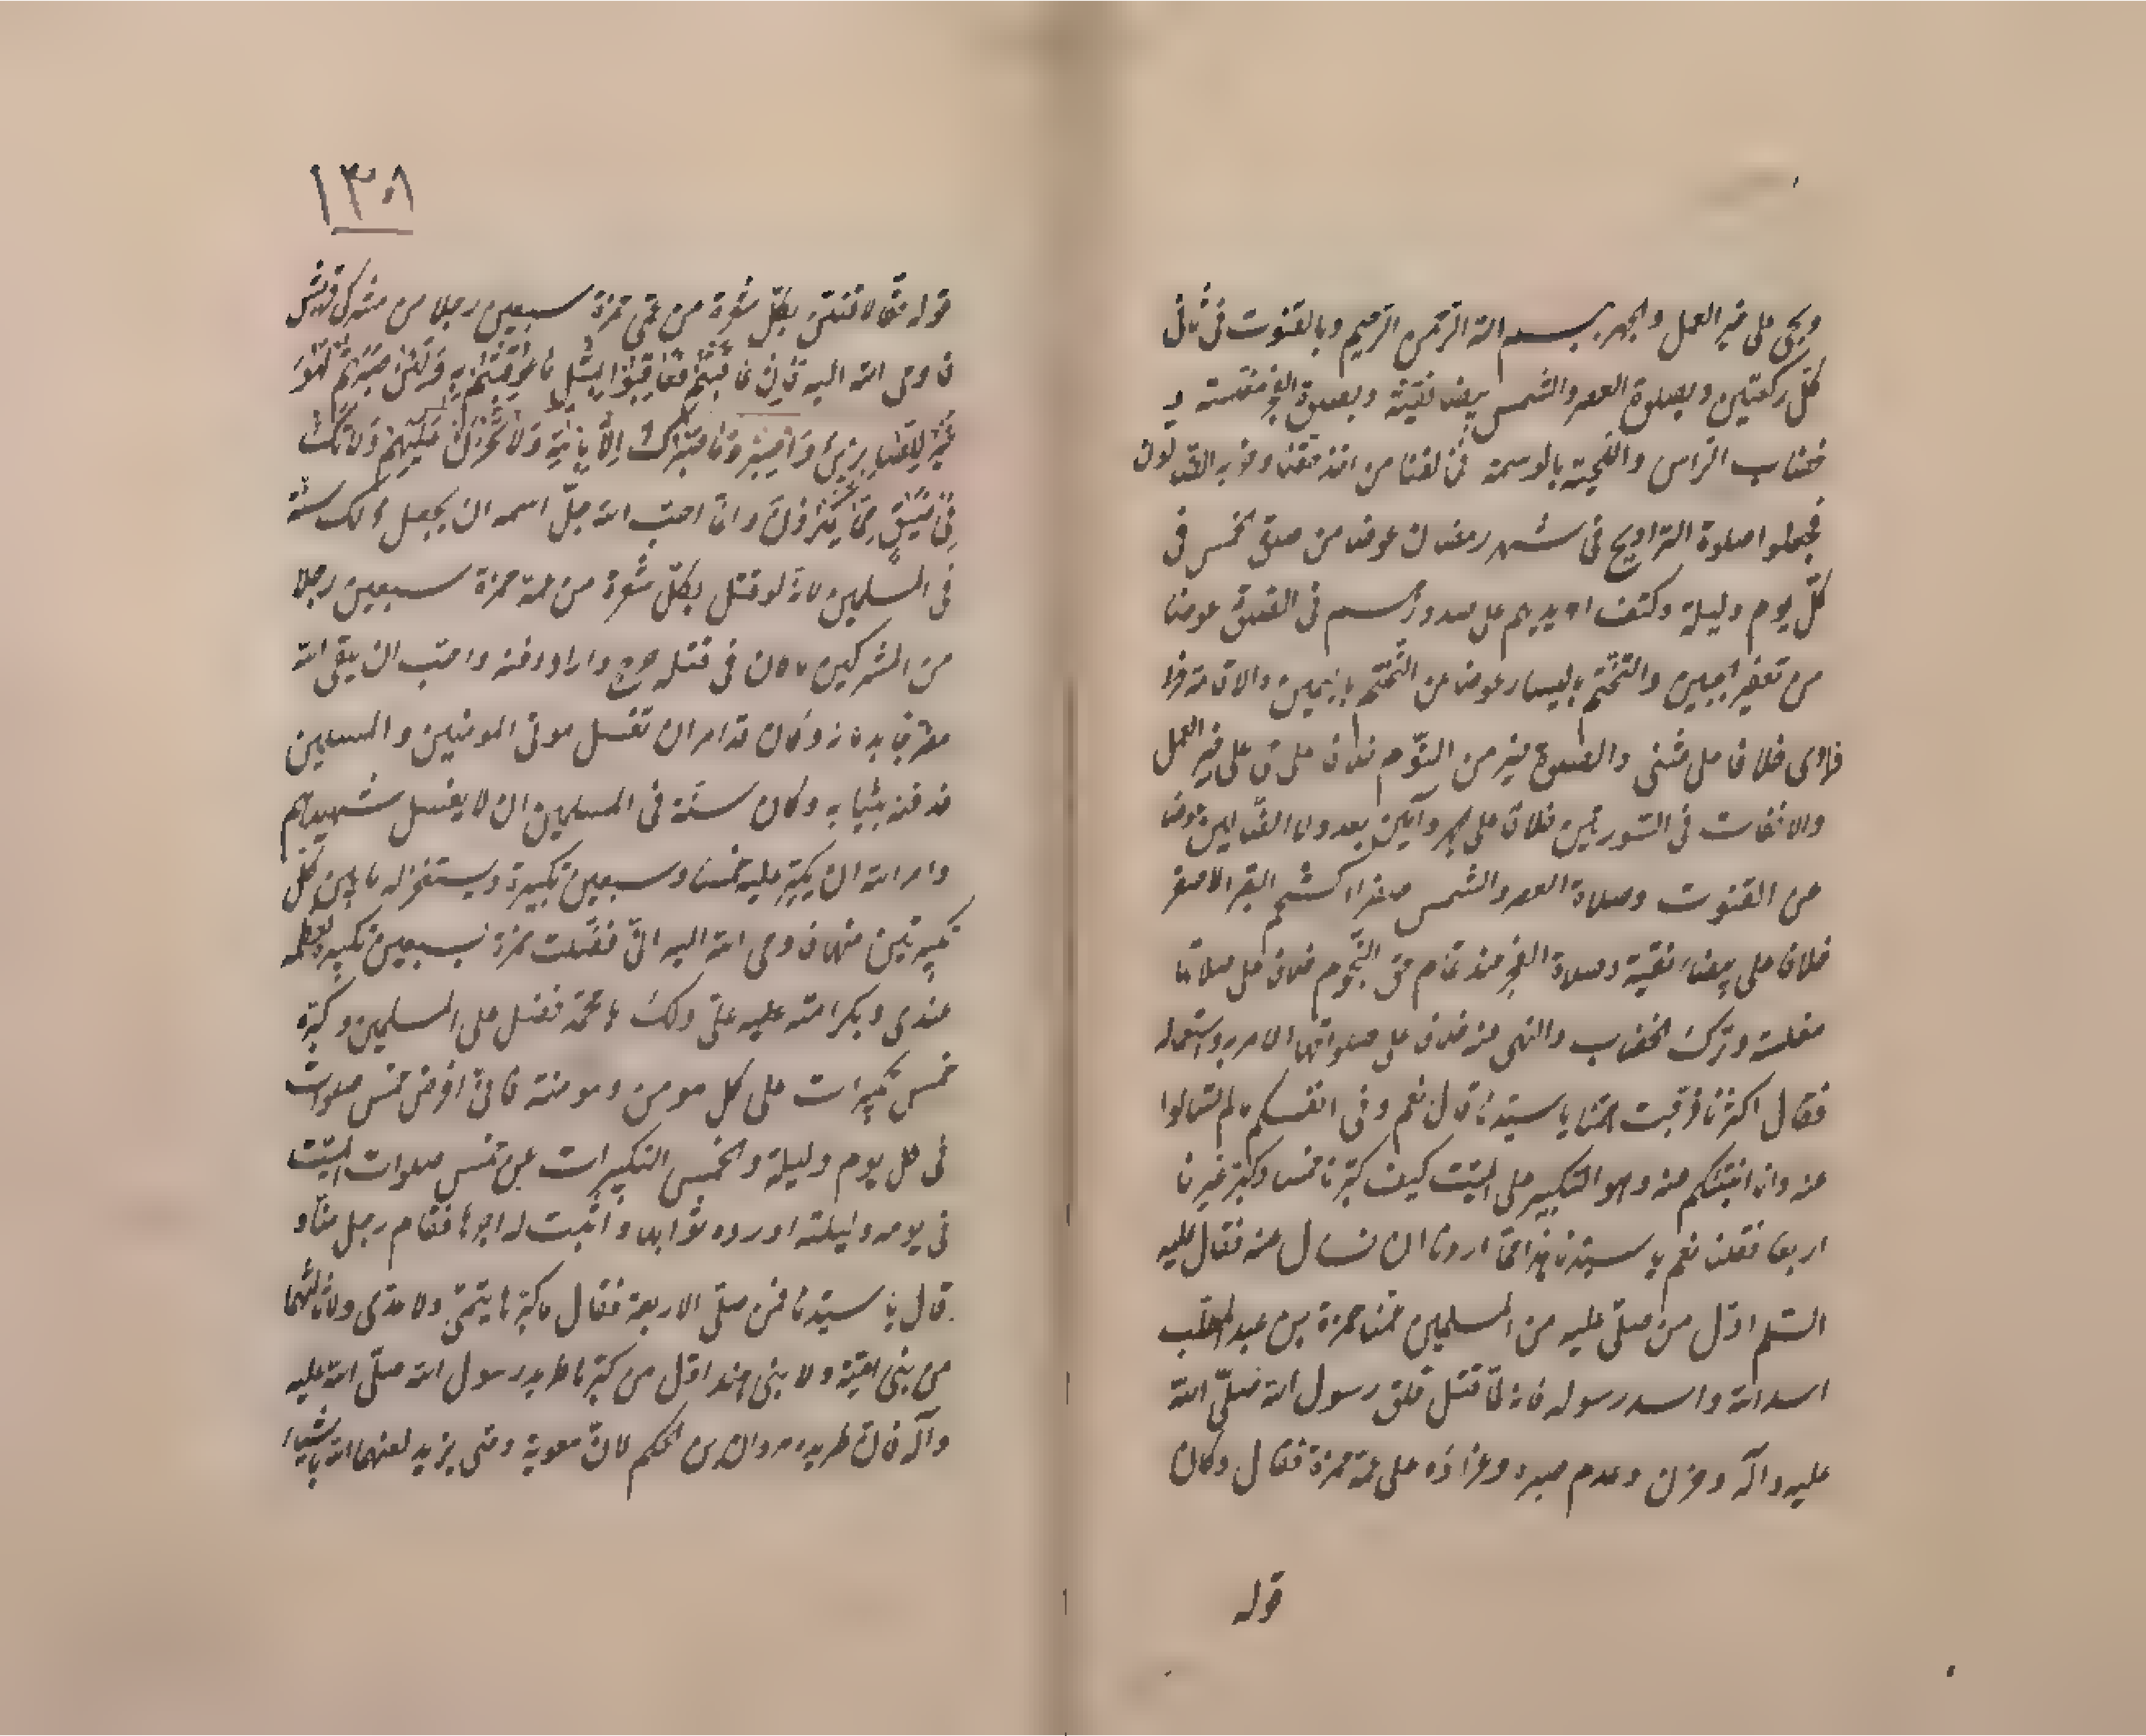 وبحى على خير العمل والجهر ببسم الله الرحمن الرحيم وبالقنوت فى ثانى
كل ركعتين وبصلوة العصر والشمس بيضا نقية وبصلوة الفجر مغلسة و
خضاب الراس واللحية بالوسمة فخالفنا من اخذ حقنا وحزبه الضالون
فجعلوا صلوة التراويح فى شهر رمضان عوضا من صلوة الخمس فى
كل يوم وليلة وكتف ايديهم على صدورهم فى الصلوة عوضا
من تعفير الجبين والتختم باليسار عوضا من التختم باليمين والاقامة فرا
فرادى خلافا على مثنى والصلوة خير من النوم خلافا على حى على خير العمل
والاخفات فى السورتين خلافا على الجهر وآمين بعد ولا الضالين عوضا
من القنوت وصلاة العصر والشمس صفرا كشحم البقر الاصفر
خلافا على بيضاء نقية وصلاة الفجر عند تمام محق النجوم خلافا على صلاتها
مغلسة وترك الخضاب والنهى عنه خلافا على الامر به واستعماله
فقال اكثرنا فرجت عنا يا سيدنا قال نعم وفى انفسكم ما لم تسالوا
عنه وانا انبئكم عنه وهو التكبير على الميت كيف كبرنا خمسا وكبر غيرنا
اربعا فقلنا نعم يا سيدنا هذا مما اردنا ان نسال عنه فقال عليه
السلم اول من صلى عليه من المسلمين عمنا حمزة بن عبد المطلب
اسد الله واسد رسوله فانه لما قتل قلق رسول الله صلى الله
عليه وآله وحزن وعدم صبره وعزاؤه على عمه حمزة فقال وكان
قوله
١٣٨
قوله حقا لاقتلن بكل شعرة من عمى حمزة سبعين رجلا من مشركى قريش
فاوحى الله اليه فان عاقبتم فعاقبوا بمثل ما عوقبتم به ولئن صبرتم لهو
خير للصابرين واصبر وما صبرك الا بالله ولا تحزن عليهم ولا تك
فى ضيق مما يمكرون وانما احب الله جل اسمه ان يجعل ذلك سنة
فى المسلمين لانه لو قتل بكل شعرة من عمه حمزة سبعين رجلا
من المشركين ما كان فى قتله حرج واراد دفنه واحب ان يلقى الله
مضرجا بدمائه وكان قد امر ان تغسل موتى المومنين والمسلمين
فدفنه بثيابه وكان سنة فى المسلمين ان لا يغسل شهيدهم
وامر الله ان يكبر عليه خمسا وسبعين تكبيرة ويستغفر له ما بين كل
تكبيرتين منها فاوحى الله اليه انى فضلت حمزة بسبعين تكبيرة لعظمه
عندى وبكرامته على ولك يا محمد فضل على المسلمين وكبر
خمس تكبيرات على كل مومن ومومنة فانى افرض خمس صلوات
فى كل يوم وليلة والخمس التكبيرات عن خمس صلوات الميت
فى يومه وليلته اورده ثوابها واثبت له اجرها فقام رجل منا و
قال يا سيدنا فمن صلى الاربعة فقال ما كبرها تيمى ولا عدى ولا ثالثهما
من بنى امية ولا بنى هند اول من كبرها طريد رسول الله صلى الله عليه
وآله فان طريده مروان بن الحكم لان معوية وصى يزيد لعنهما الله باشياء